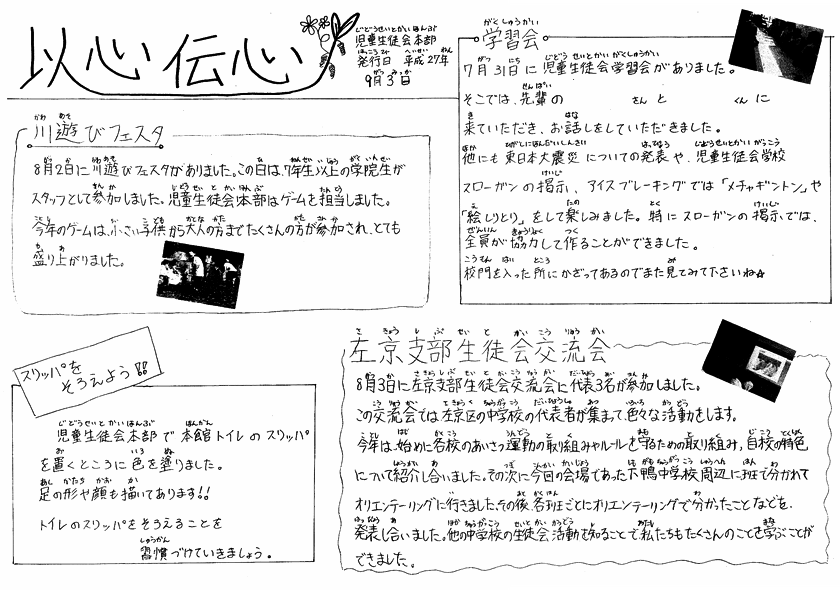 以心伝心
児童生徒会本部
発行日 平成27年
9月3日
川遊びフェスタ
8月2日に川遊びフェスタがありました。この日は、7年生以上の学院生が
スタッフとして参加しました。児童生徒会本部はゲームを担当しました。
今年のゲームは、小さい子供から大人の方までたくさんの方が参加され、とても
盛り上がりました。
学習会
7月31日に児童生徒会学習会がありました。
そこでは、先輩の さんと くんに
来ていただき、お話しをしていただきました。
他にも東日本大震災についての発表や、児童生徒会学校
スローガンの掲示、アイスブレーキングでは「メチャギントン」や
「絵しりとり」をして楽しみました。特にスローガンの掲示では、
全員が協力して作ることができました。
校門を入った所にかざってあるのでまた見てみて下さいね☆
スリッパを
そろえよう!!
児童生徒会本部で本館トイレのスリッパ
を置くところに色を塗りました。
足の形や顔も描いてあります!!
トイレのスリッパをそろえることを
習慣づけていきましょう。
左京支部生徒会交流会
8月3日に左京支部生徒会交流会に代表3名が参加しました。
この交流会では左京区の中学校の代表者が集まって、色々な活動をします。
今年は、始めに各校のあいさつ運動の取り組みやルールを守るための取り組み、自校の特色
について紹介し合いました。その次に今回の会場であった下鴨中学校周辺に班で分かれて
オリエンテーリングに行きました。その後、各班ごとにオリエンテーリングで分かったことなどを、
発表し合いました。他の中学校の生徒会活動を知ることで、私たちもたくさんのことを学ぶことが
できました。